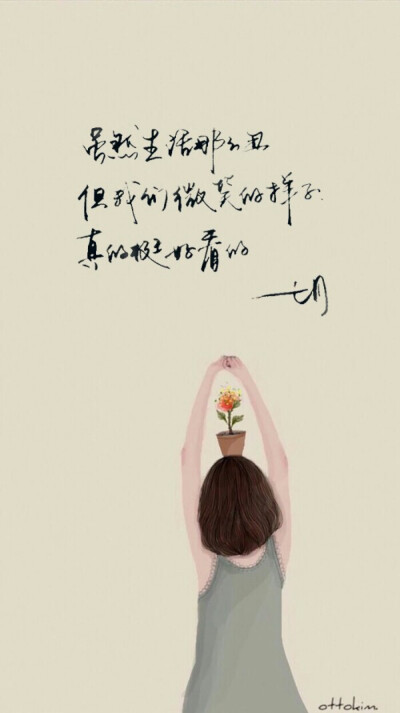 虽然生活那么丑
但我们微笑的样子
真的挺好看的
ottokim.